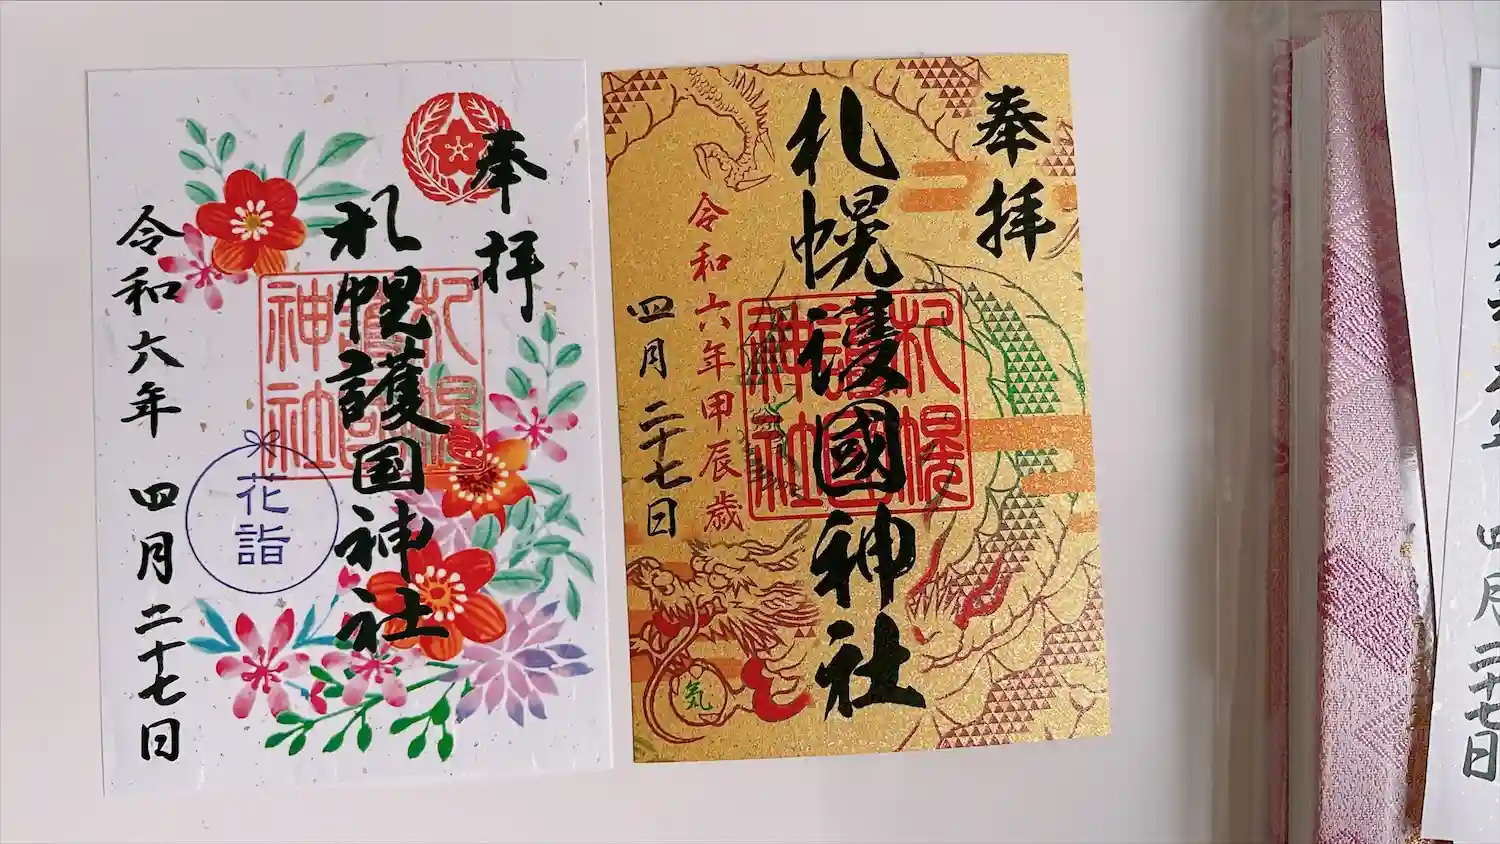 奉拝
札幌護国神社
令和六年 四月二十七日
花詣
札幌護国神社
奉拝
札幌護國神社
令和六年甲辰歳
四月二十七日
札幌護國神社
氣
四月二十七日